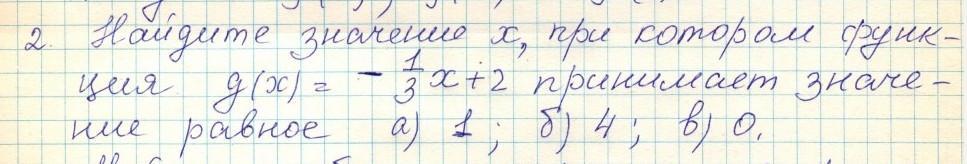 2. Найдите значение x, при котором функ-
ция g(x) = - 1/3 x + 2 принимает значе-
ние равное а) 1 ; б) 4 ; в) 0.